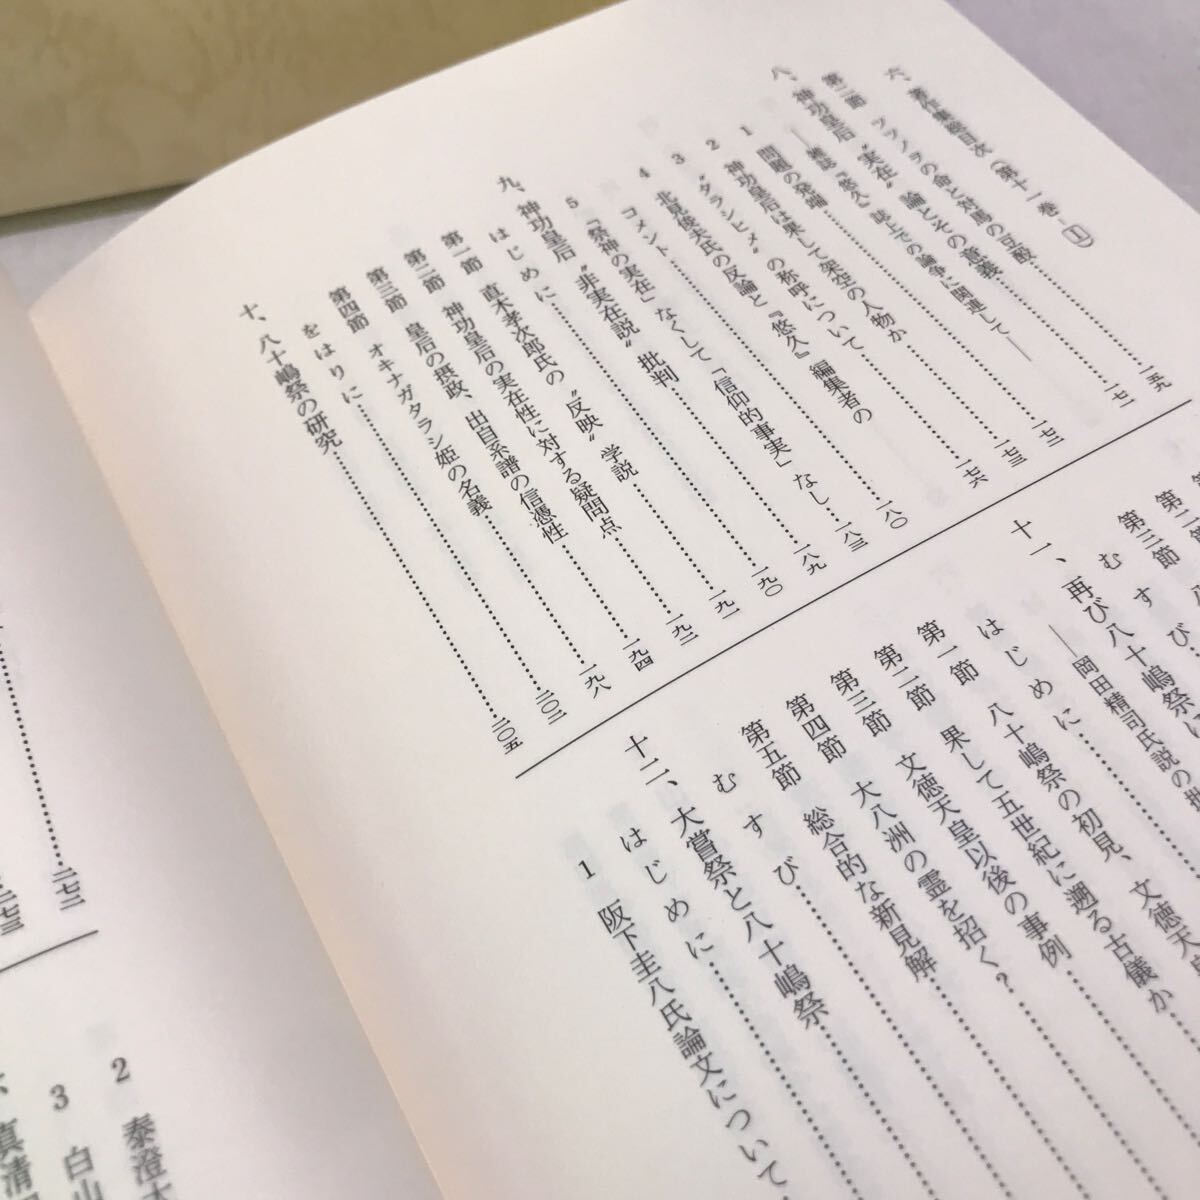 六、著作集総目次(第十一巻―Ⅱ)
第二節 ツツノヲの命と対馬の豆酘……一五九
八、神功皇后〝実在〟論とその意義……一七二
―雑誌『悠久』誌上での論争に関連して―
1 問題の発端……一七二
2 神功皇后は果して架空の人物か……一七三
3 〝タラシヒメ〟の称呼について……一七六
4 北見俊夫氏の反論と『悠久』編集者の
コメント……一八〇
5 「祭神の実在」なくして「信仰的事実」なし……一八三
九、神功皇后〝非実在説〟批判……一八九
はじめに……一九〇
第一節 直木孝次郎氏の〝反映〟学説……一九一
第二節 神功皇后の実在性に対する疑問点……一九二
第三節 皇后の摂政、出自系譜の信憑性……一九四
第四節 オキナガタラシ姫の名義……一九八
をはりに……二〇三
十、八十嶋祭の研究……二〇五
第二節
第三節
むすび……
十一、再び八十嶋祭に
―岡田精司氏説の批
はじめに……
第一節 八十嶋祭の初見、文徳天皇
第二節 果して五世紀に遡る古儀か
第三節 文徳天皇以後の事例……
第四節 大八洲の霊を招く?……
第五節 総合的な新見解……
むすび……
十二、大嘗祭と八十嶋祭……
はじめに……
1 阪下圭八氏論文について……
二七二
二七三
2 泰澄大
3 白山
真清田